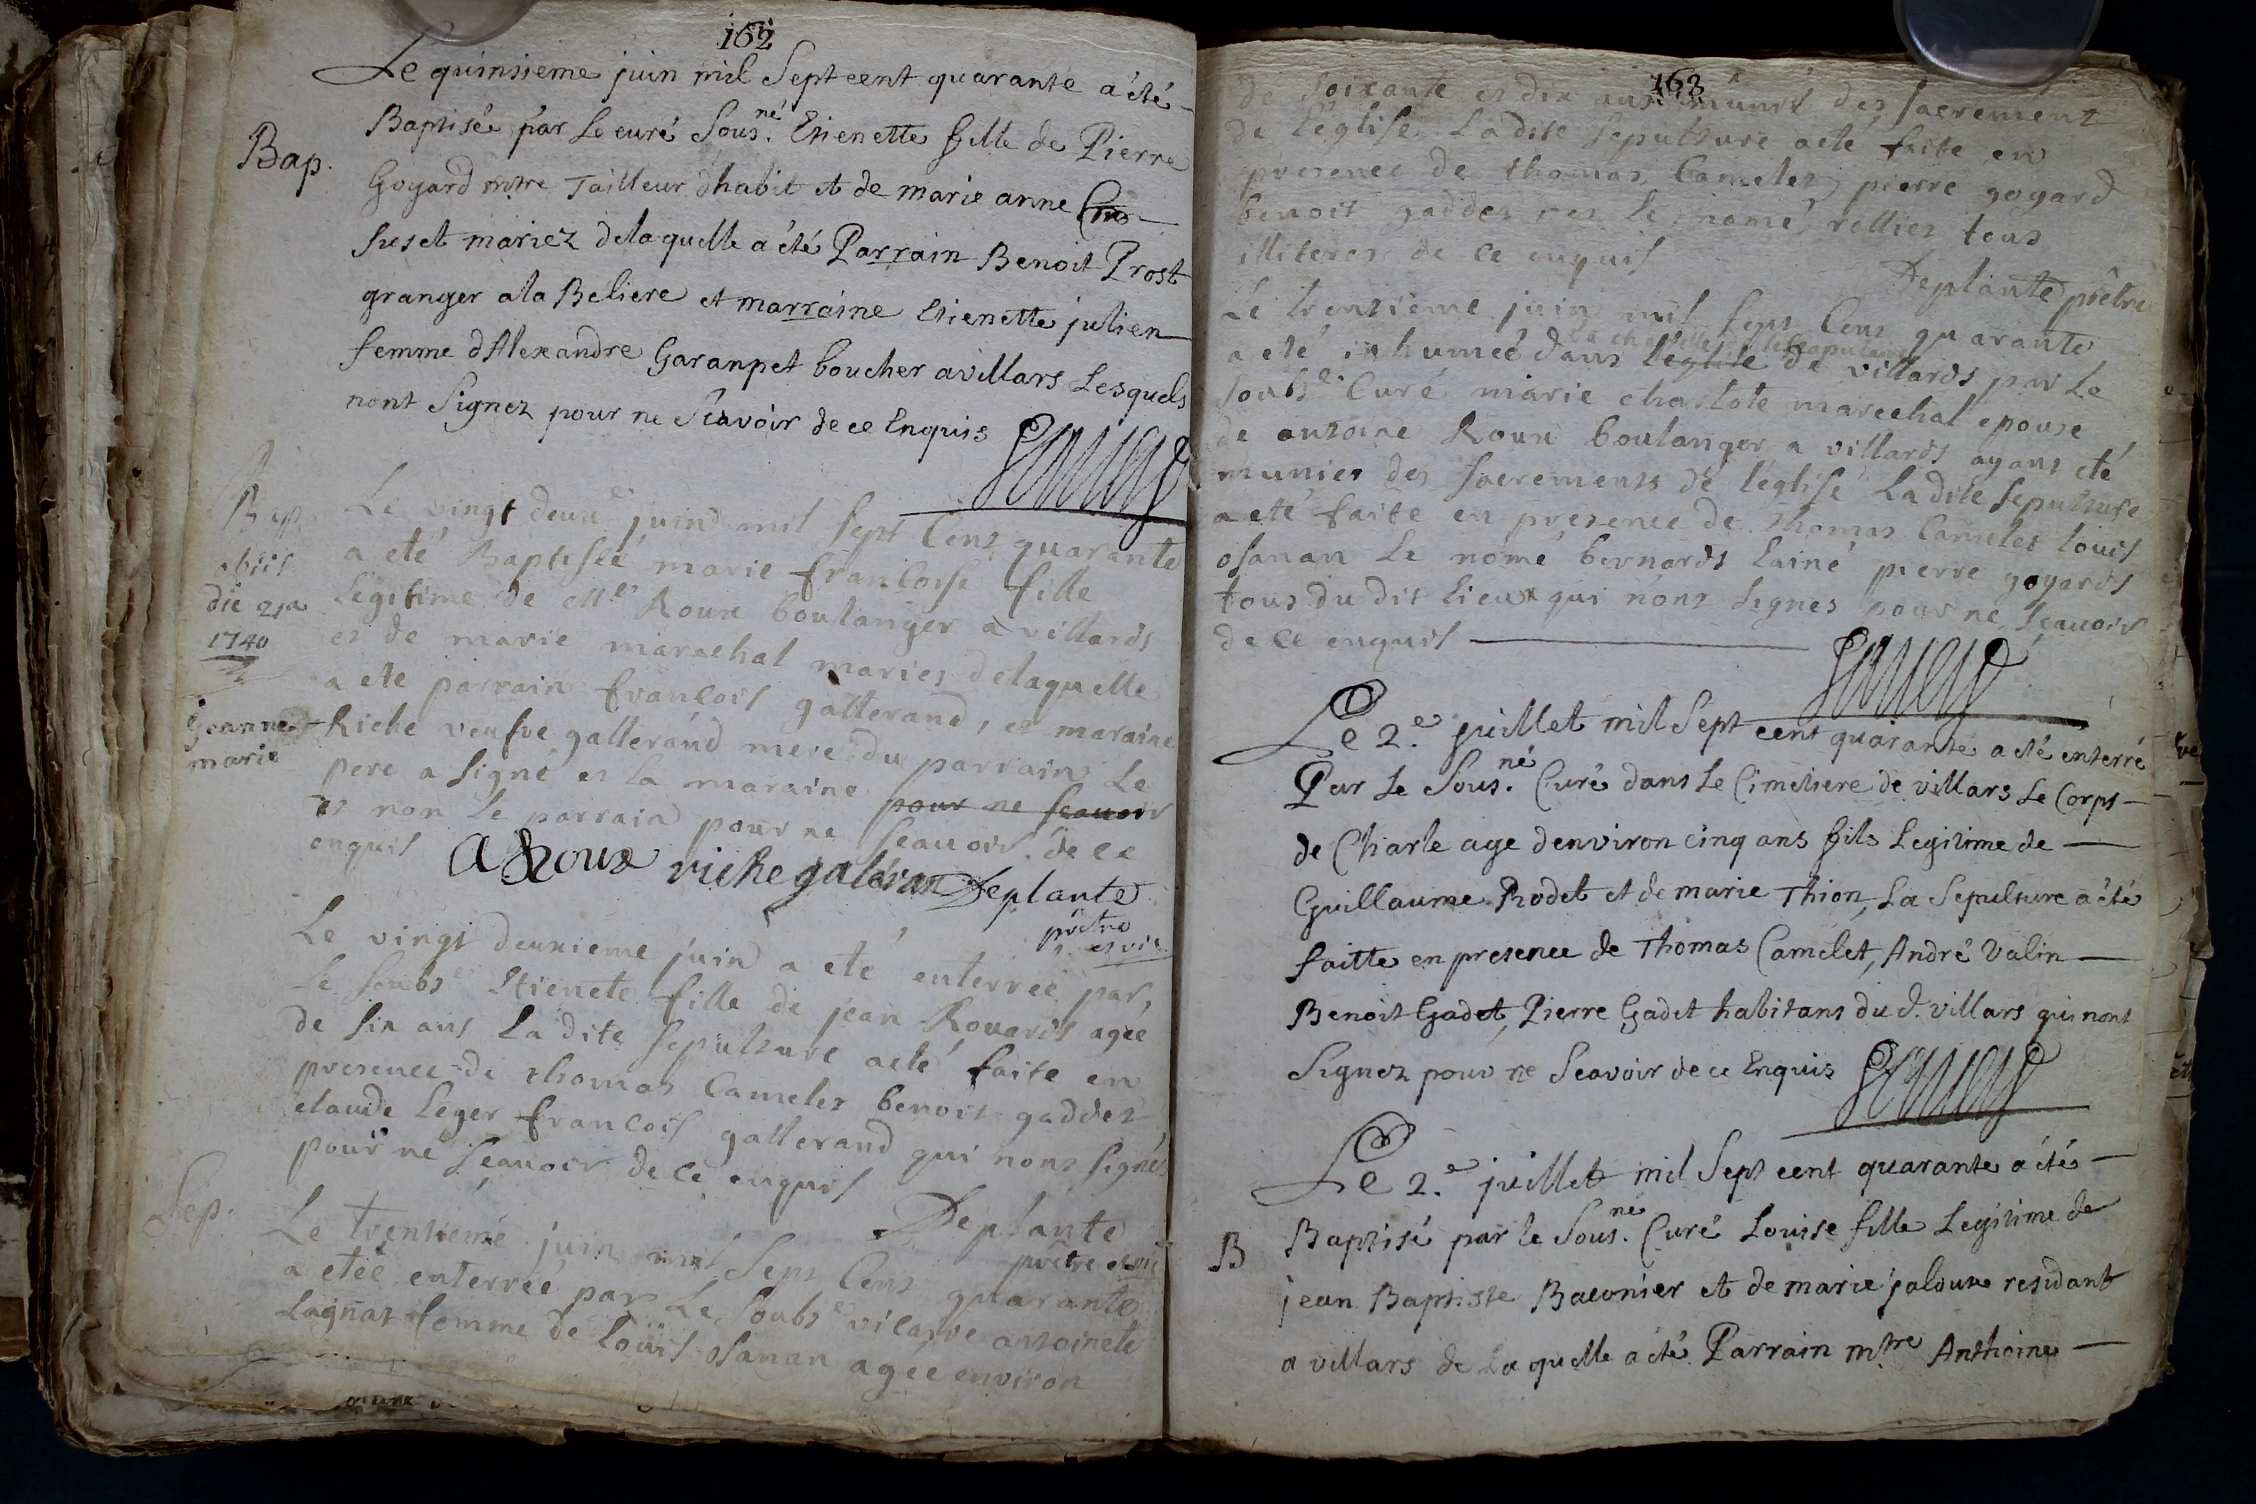 162
Le quinsieme juin mil Sept cent quarante a été
Bap.
Baptisé par Le curé Sous.né Etienette fille de Pierre
Goyard mtre Tailleur d'habit et de marie anne
suset mariez delaquelle a été Parrain Benoit Prost
granger a la Beliere et marraine Etienette julien
femme d'Alexandre Garanpet boucher a villars Lesquels
nont Signez pour ne Scavoir de ce Enquis
Bap.
obiit
die 29a
1740
Le vingt deuxe juin mil sept Cens quarante
a eté Baptisée marie francoise fille
Légitime de Roux boulanger a villards
es de marie marechal maries delaquelle
a ete parrain francois gallerand, es maraine
Jeanne
marie
Riche veufve gallerand mere du parrain Le
pere a signé es la maraine pour ne scauoir
es non le parrain pour ne scauoir de ce
enquis
A Roux riche galéran Deplante
prêtre
et vic
Le vingt deuxieme juin a eté enterrée par
Le soubse Etienete fille de jean Rouards agée
de six ans La dite sepulture aeté faite en
presence de thomas Camelet benoit gaddet
claude Leger francois gallerand qui nons signés
pour ne scauoir de ce enquis
Deplante
prêtre et vic
Sep.
Le trentieme juin mil Sept Cens quarante
a etée enterrée par Le Soubse vicaire antoinete
Lagnat femme de Loüis osanan agée environ
163
de soixante et dix ans munis des sacrement
de l'église La dite sepulture aeté faite en
presence de thomas Camelet pierre goyard
benoit gaddet es le nomé rollies tous
illiteres de ce enquis
Deplante prêtre
Le trentieme juin mil sept Cens quarante
la chapelle du scapulaire
a eté inhumée dans l'église de villards par Le
soubse Curé marie charlote marechal epouse
de antoine Roux boulanger a villards ayans eté
munies des sacrements de l'église La dite sepulture
a eté faite en presence de thomas Camelet louis
osanan Le nomé bernards lainé pierre goyards
tous du dit lieux qui nons signes pour ne scauoir
de ce enquis
Le 2.e juillet mil Sept cent quarante a été enterré
Par Le Sous.né Curé dans Le Cimetiere de villars Le Corps
de Charle age denviron cinq ans fils Legitime de
Guillaume Rodet et de marie Thion, La Sepulture a été
faitte en presence de Thomas Camelet, André Valin
Benoit Gadet, Pierre Gadet habitans du d. villars qui nont
Signez pour ne Scavoir de ce Enquis
Le 2.e juillet mil Sept cent quarante a été
B
Baptisé par le Sous.né Curé Louise fille Legitime de
jean Baptiste Baconier et de marie jaloux residant
a villars de Laquelle a été Parrain mtre Anthoine